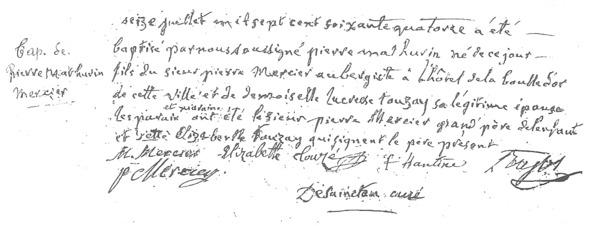 seize juillet mil sept cent soixante quatorze a été
Bap. de
Pierre Mathurin
Mercier
baptisé par nous soussigné pierre mathurin né de ce jour
fils du sieur pierre Mercier aubergiste à L'hôtel de la boulle d'or
de cette ville et de demoiselle Lucresse touzay sa légitime épouse
et maraine
les parain ont été le sieur pierre Mercier grand père de lenfant
et Elizabeth touzay qui signent le père présent
M. Mercier Elizabette
p Mercier
curé